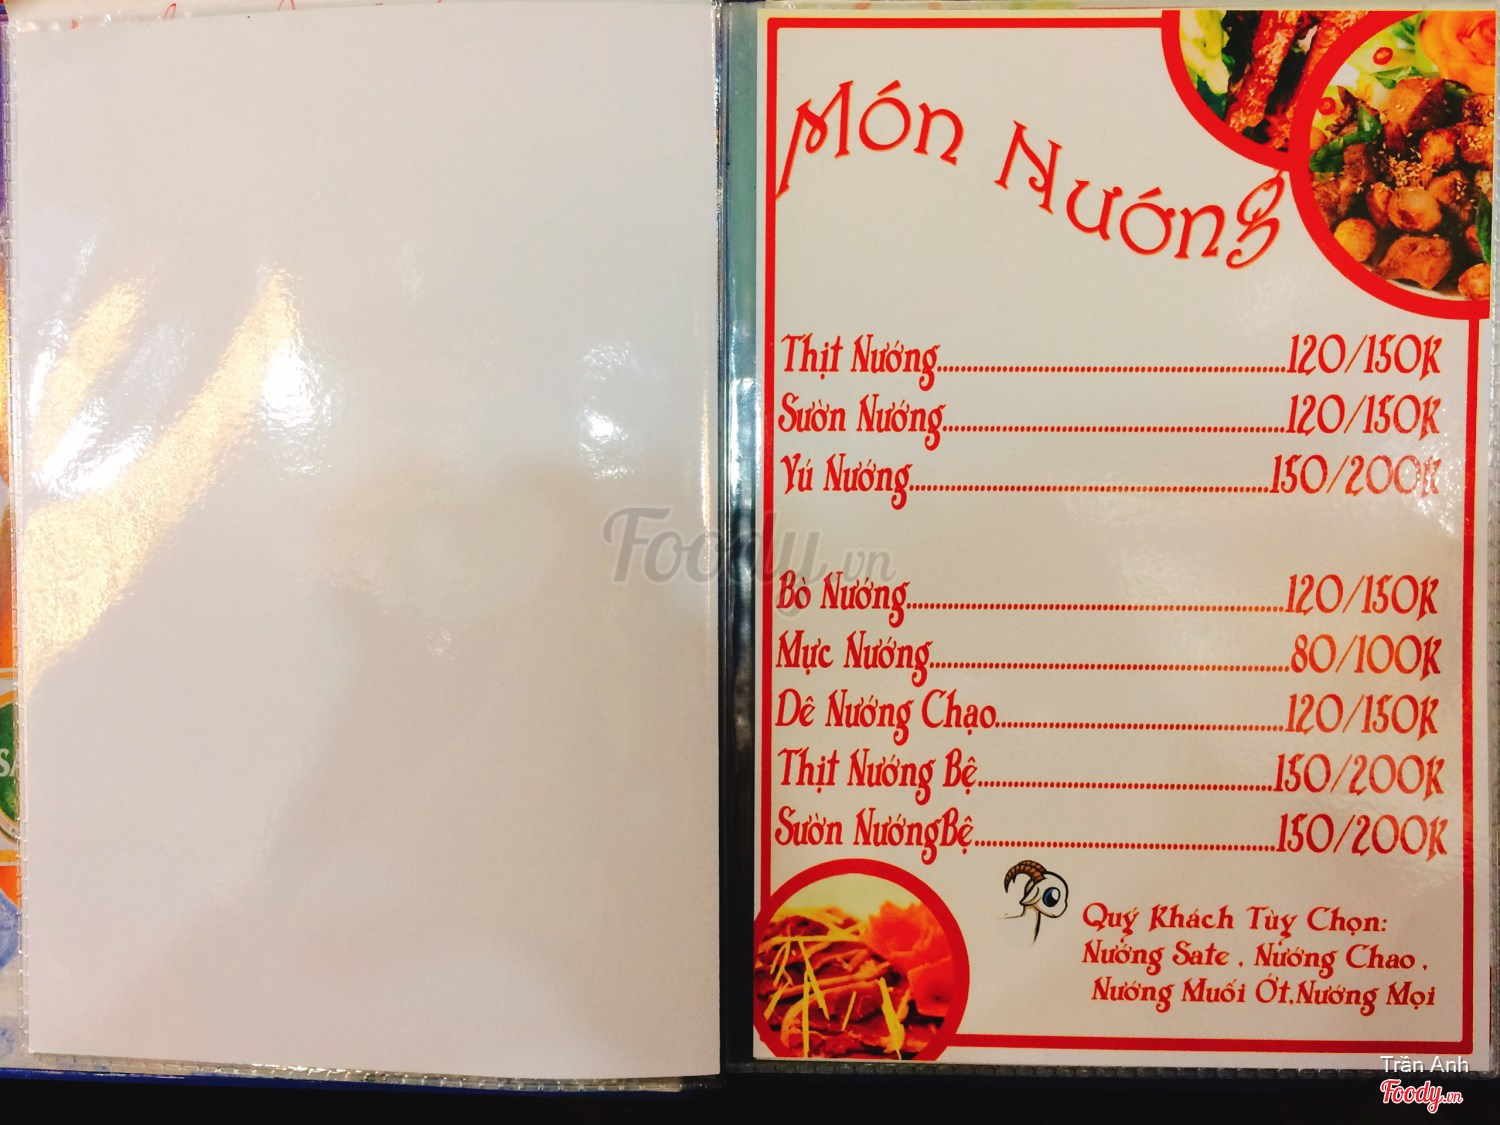 Món Nướng
Thịt Nướng............120/150K
Sườn Nướng............120/150K
Yú Nướng............150/200K
Foody.vn
Bò Nướng............120/150K
Mực Nướng............80/100K
Dê Nướng Chạo............120/150K
Thịt Nướng Bệ............150/200K
Sườn NướngBệ............150/200K
Quý Khách Tùy Chọn:
Nướng Sate , Nướng Chao ,
Nướng Muối Ớt,Nướng Mọi
Trần Anh
Foody.vn